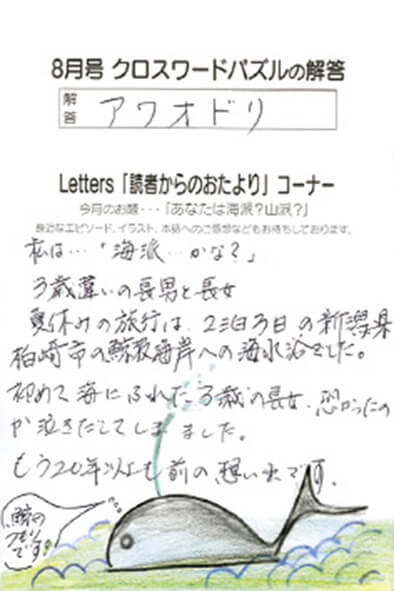 8月号 クロスワードパズルの解答
解答
アワオドリ
Letters「読者からのおたより」コーナー
今月のお題・・・「あなたは海派?山派?」
身近なエピソード、イラスト、本誌へのご感想などもお待ちしております。
私は…「海派…かな?」
3歳違いの長男と長女
夏休みの旅行は、2泊3日の新潟県
柏崎市の鯨波海岸への海水浴でした。
初めて海にふれた3歳の長女、恐かったの
か泣きだしてしまいました。
もう20年以上も前の想い出です。
鯨の
つもり
です!